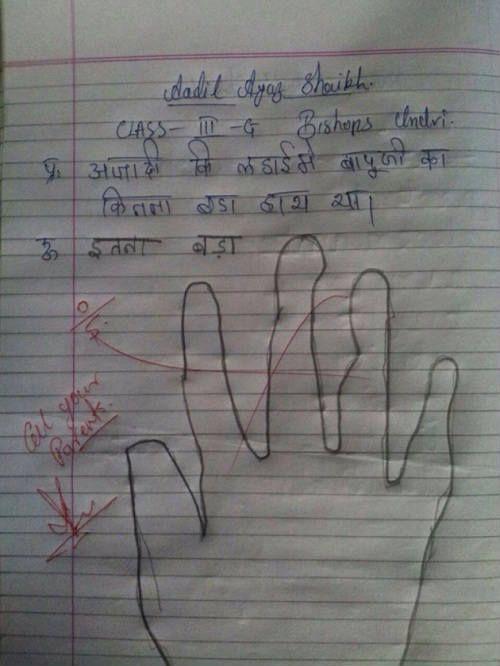 Aadil Ayaz Shaikh.
CLASS- III -G Bishops Undri.
प्र. अजादी कि लडाईमे बापूजी का
कितना बडा हाथ था।
उ. इतना बडा
0/5
Call your
Parents.